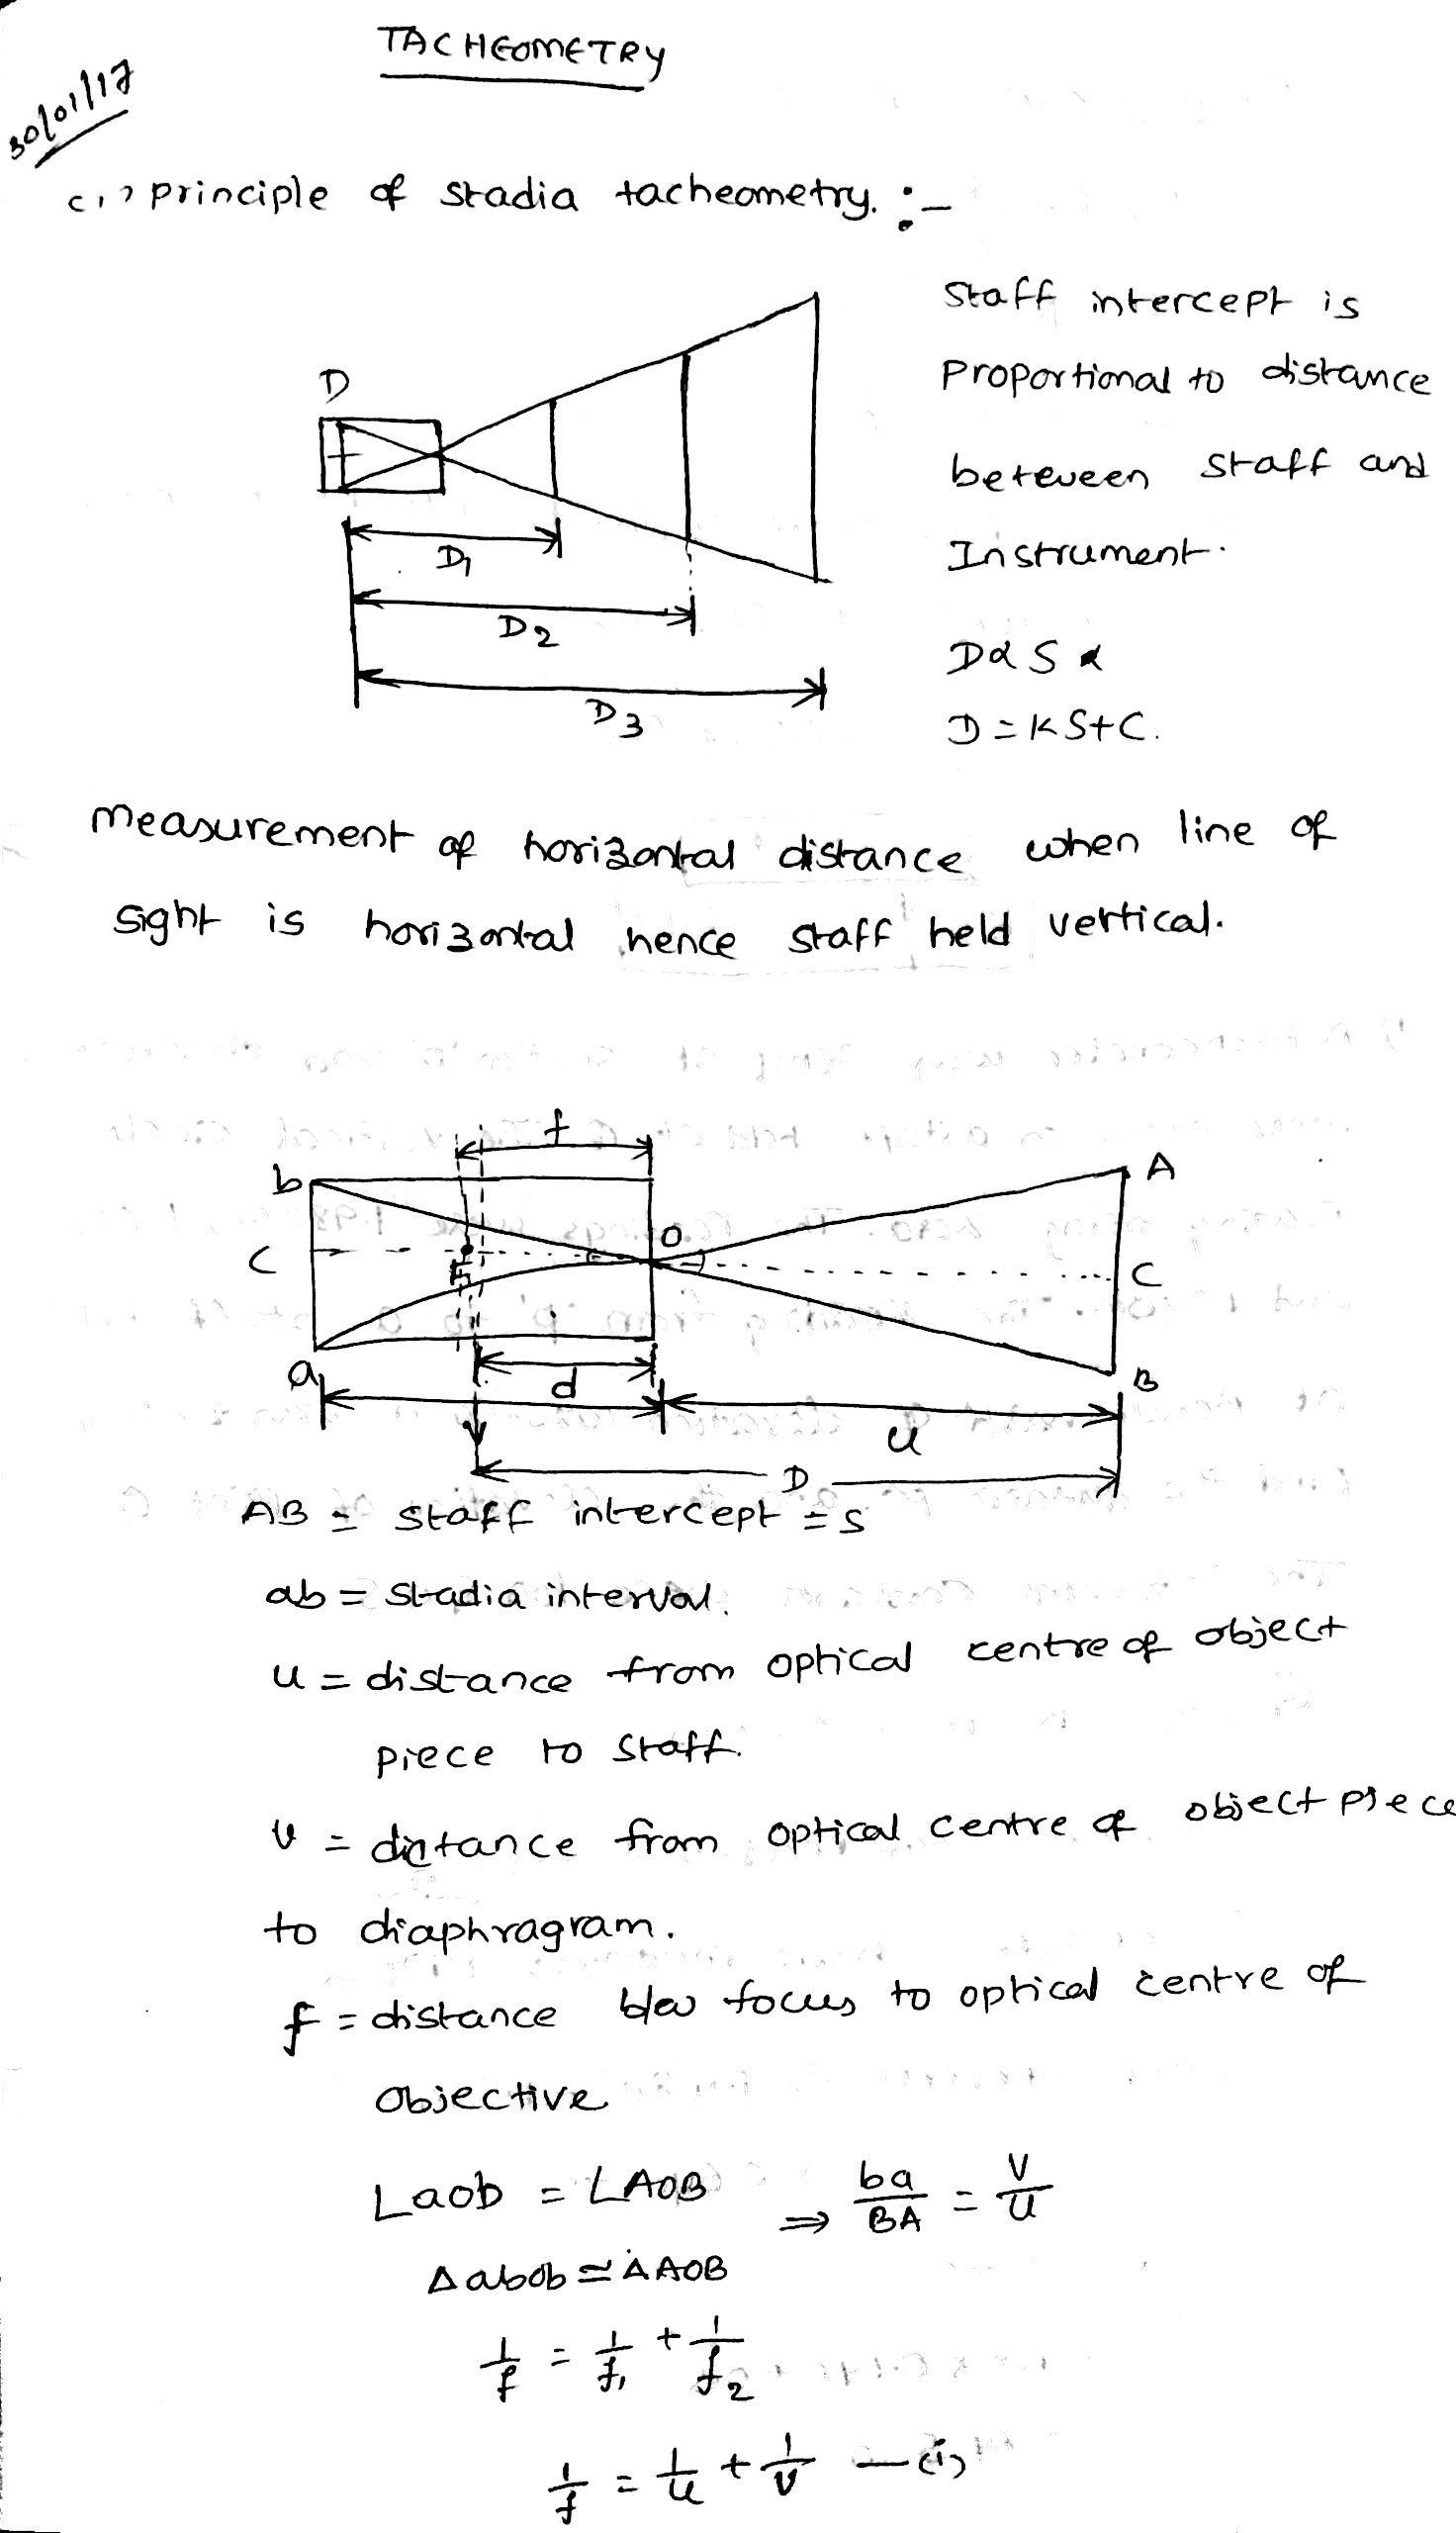 TACHEOMETRY
30/01/17
(1) principle of stadia tacheometry. :-
Staff intercept is
D
Proportional to distance
beteween staff and
D1
Instrument.
D2
D α S α
D3
D = KS+C.
measurement of horizontal distance when line of
sight is horizontal hence staff held vertical.
f
b
A
O
C
C
F
a
d
B
u
D
AB = staff intercept = s
ab = stadia interval.
u = distance from optical centre of object
piece to staff.
v = distance from optical centre of object piece
to diaphragram.
f = distance b/w focus to optical centre of
objective
∠aob = ∠AOB ⇒ ba/BA = v/u
Δ abob ≃ Δ AOB
1/f = 1/f1 + 1/f2
1/f = 1/u + 1/v —(i)